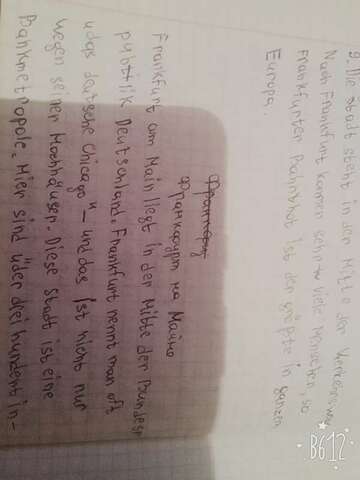 9. Die Stadt steht in der Mitte der Verkehrswege
Nach Frankfurt kommen sehr viele Menschen, so
Frankfurter Bahnhof ist der größte in ganzen
Europa.
Франкфурт
Франкфурт на Майне
Frankfurt am Main liegt in der Mitte der Bundesr
publik Deutschland. Frankfurt nennt man oft
„das deutsche Chicago" – und das ist nicht nur
wegen seiner Hochhäuser. Diese Stadt ist eine
Bankmetropole. Hier sind über drei hundert in-
B612